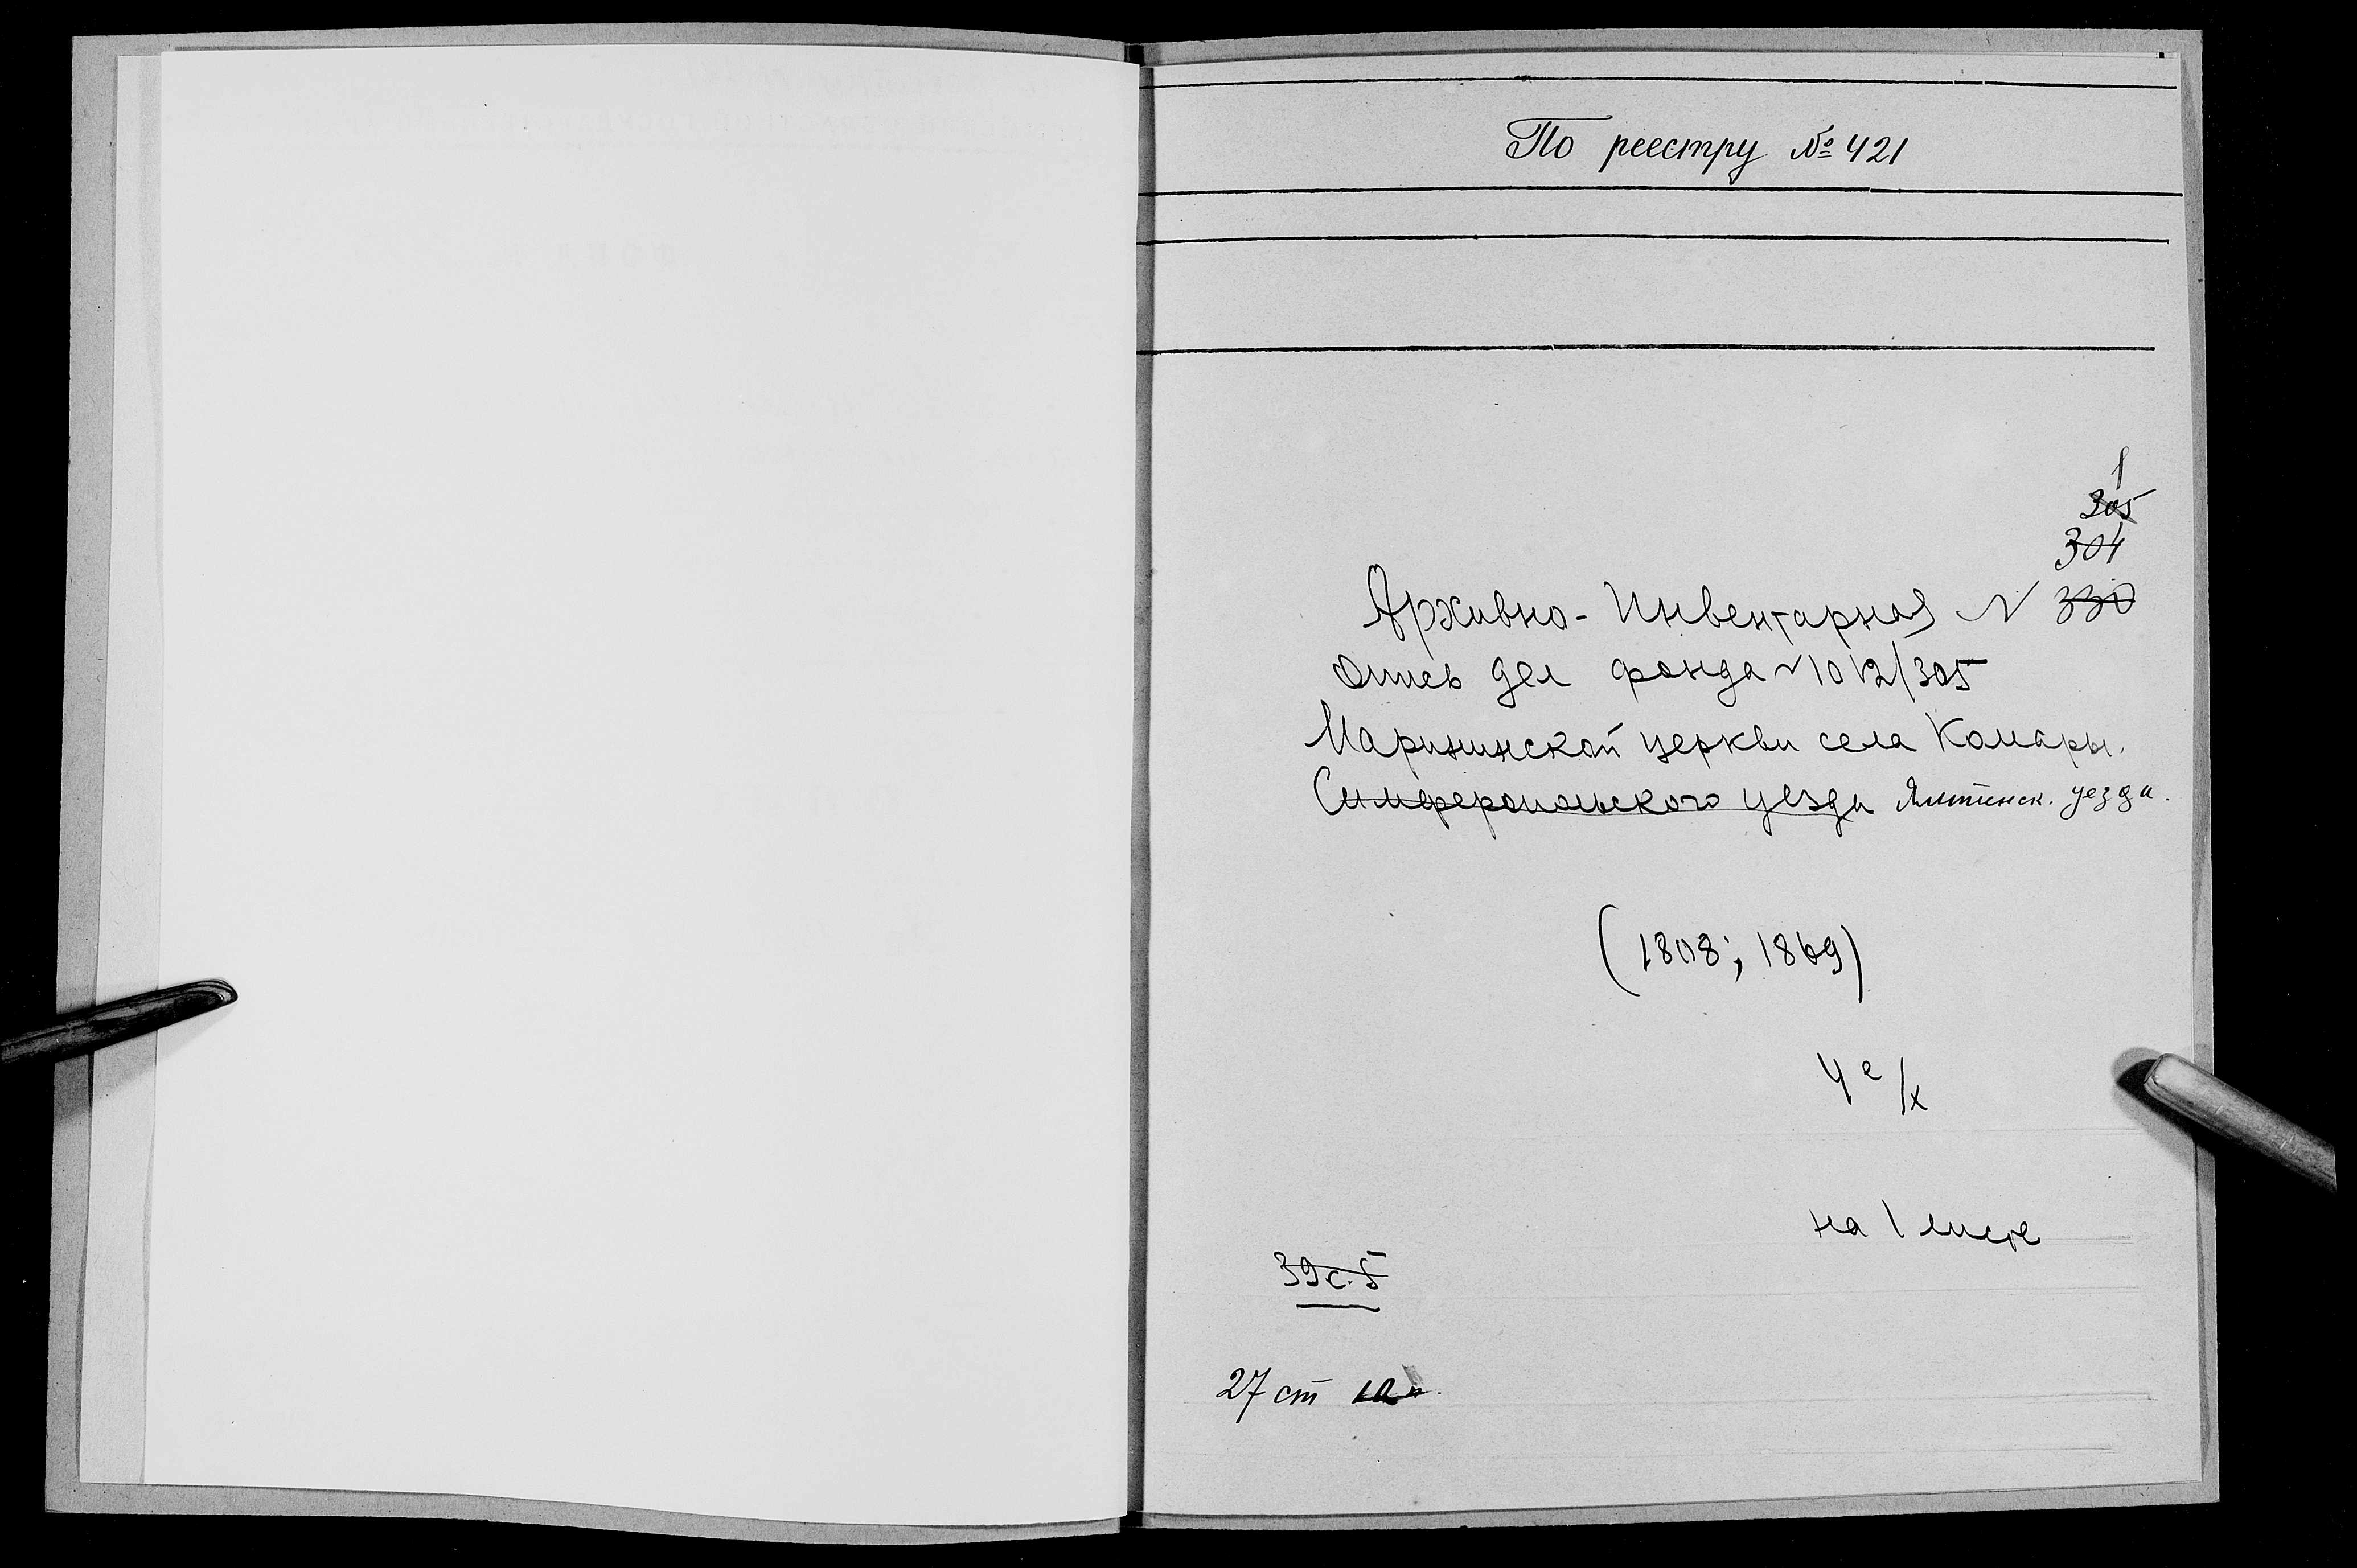 По реестру № 421
1
305
304
Архивно-Инвентарная N 330
Опись дел фонда N 1012/305
Марининской церкви села Комары.
Симферопольского уезда Ялтинск. уезда.
(1808; 1869)
4 е/х
на 1 листе
39 с. 5
27 ст